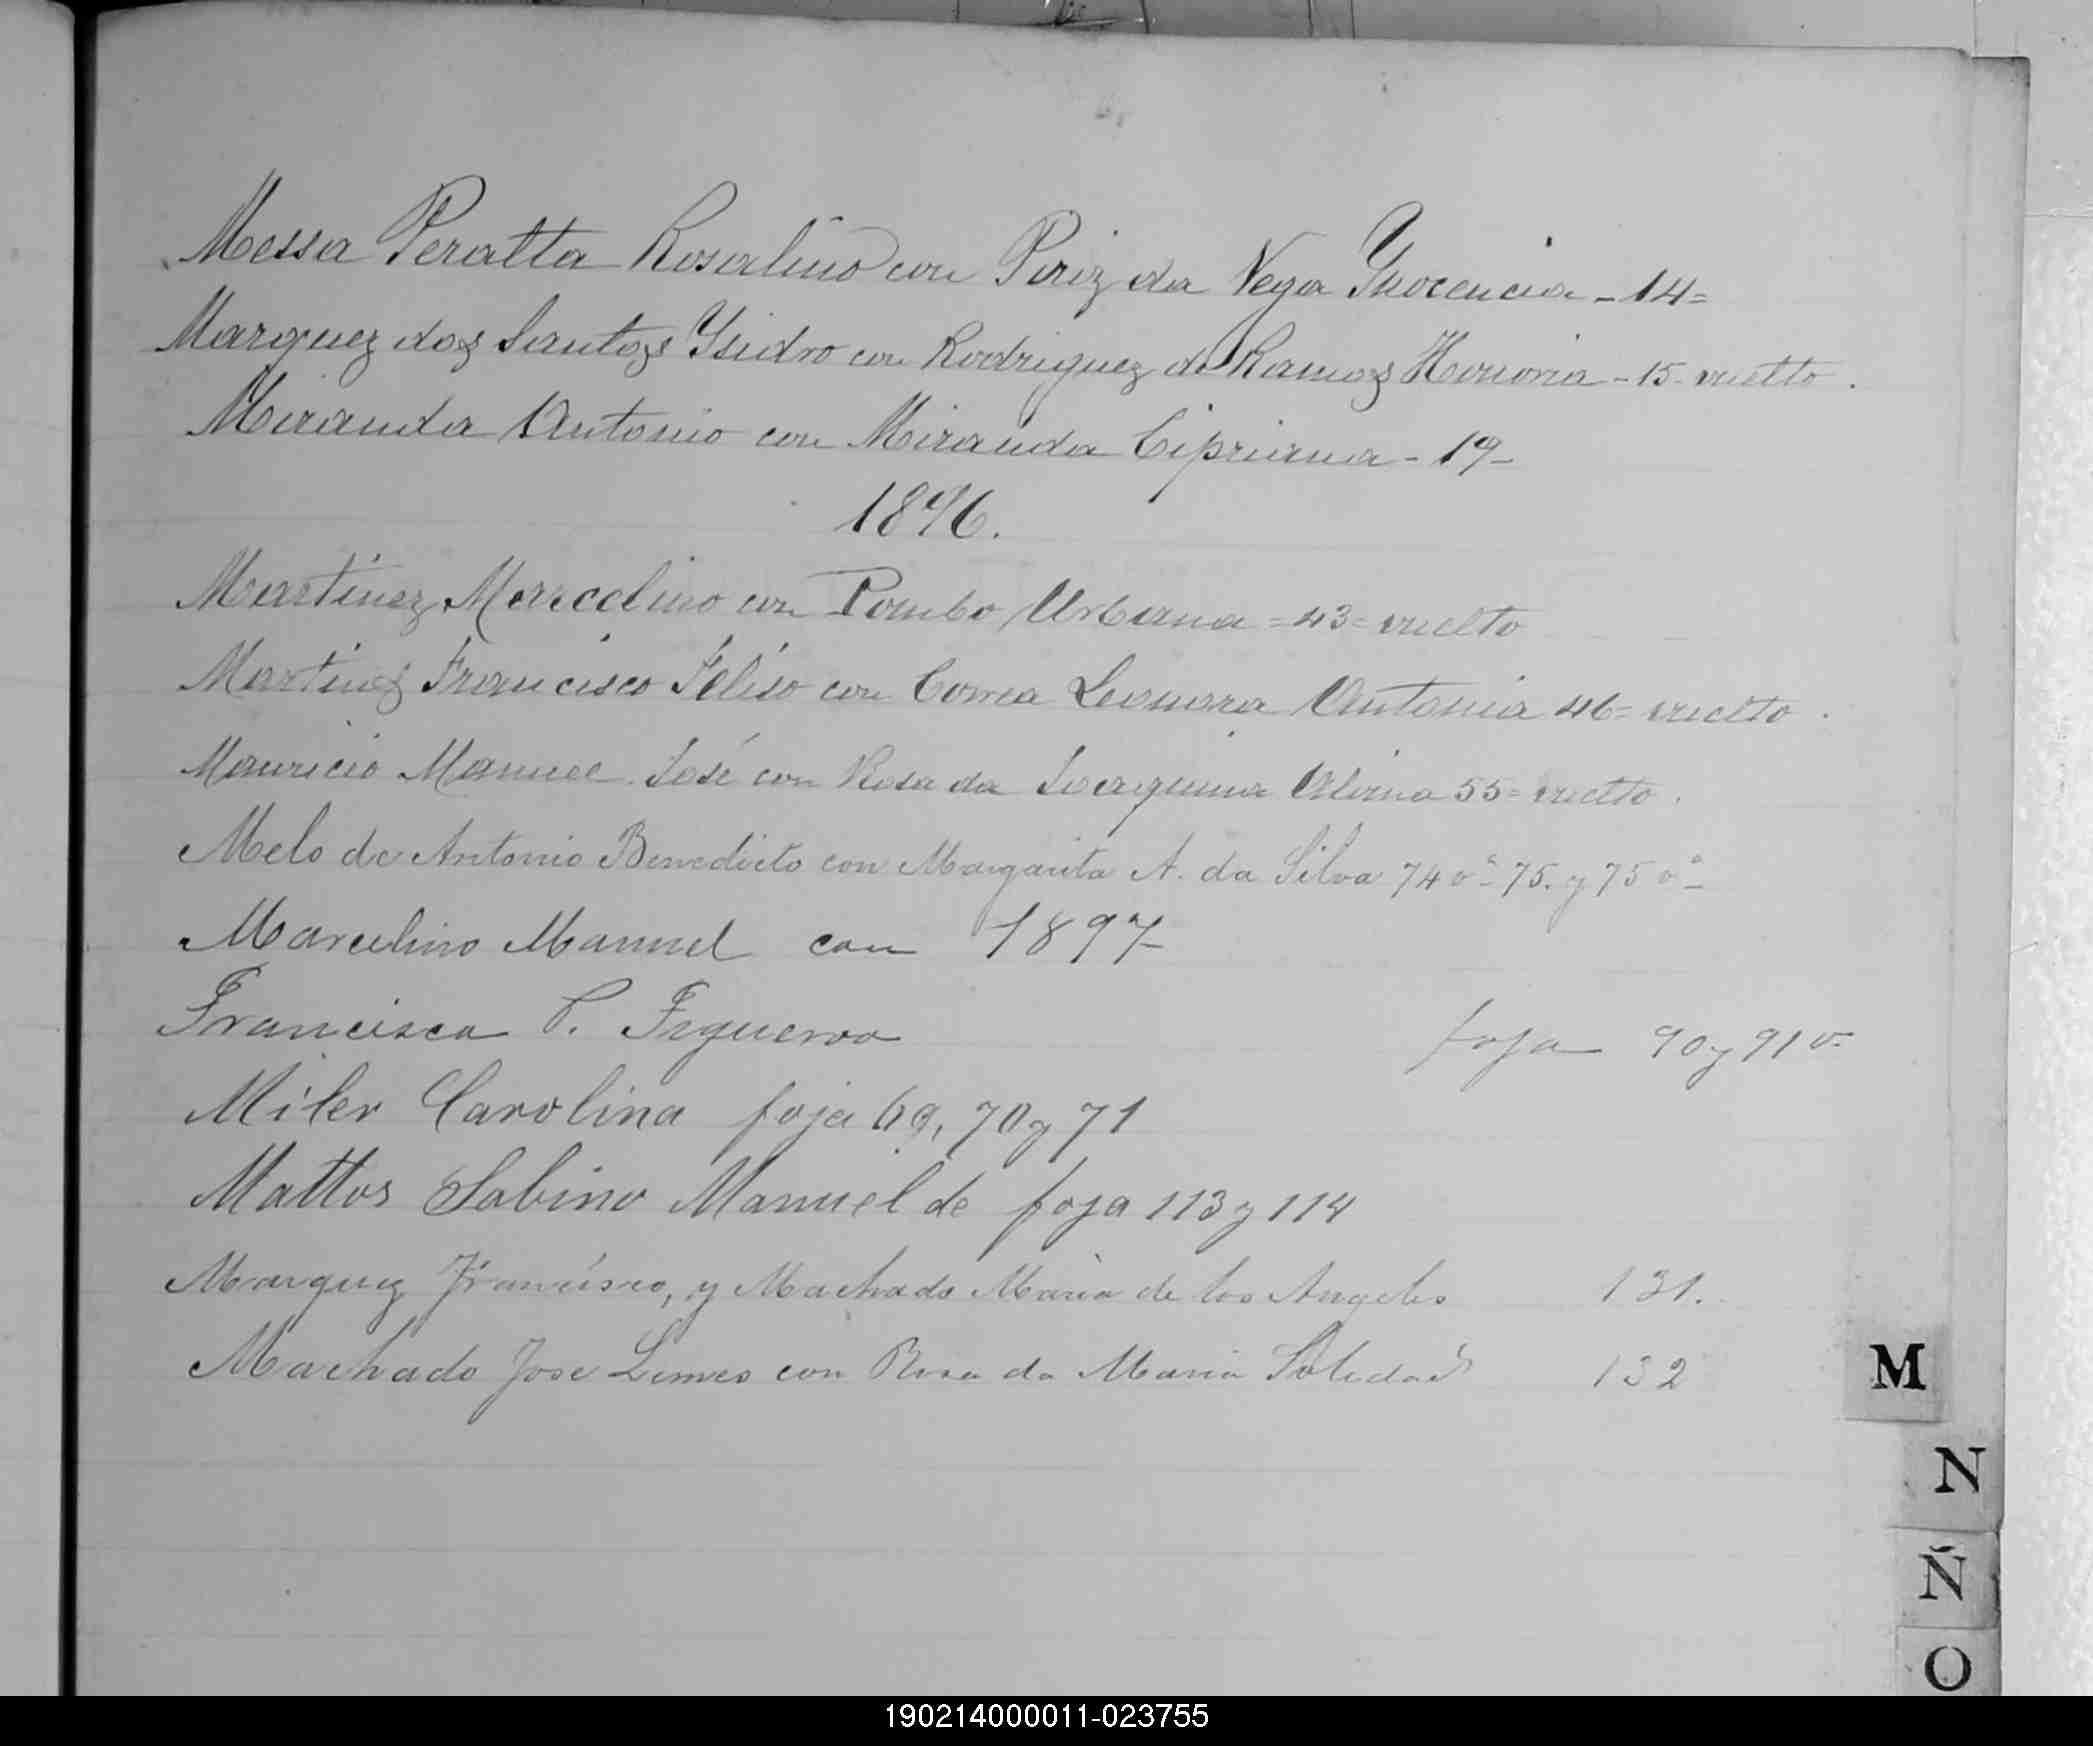 Messa Peralta Rosalino con Piriz da Vega Ynocencia - 14=
Marquez dos Santos Ysidro con Rodriguez de Ramos Honoria - 15 - vuelto.
Miranda Antonio con Miranda Cipriana - 19 -
1896.
Martinez Marcelino con Pombo Urbana = 43 = vuelto
Martinez Francisco Feliso con Correa Leonora Antonia 46 = vuelto.
Mauricio Manuel José con Rosa da Joaquina Albina 55 = vuelto.
Melo de Antonio Benedicto con Margarita A. da Silva 74 vº 75. y 75 vº
Marcelino Manuel con 1897
Francisca P. Figueroa foja 90 y 91 v.
Miler Carolina foja 69, 70 y 71
Mattos Sabino Manuel de foja 113 y 114
Marquez Francisco, y Machado Maria de los Angeles 131.
Machado Jose Lemes con Rosa da Maria Soledad 132
M
N
Ñ
O
190214000011-023755